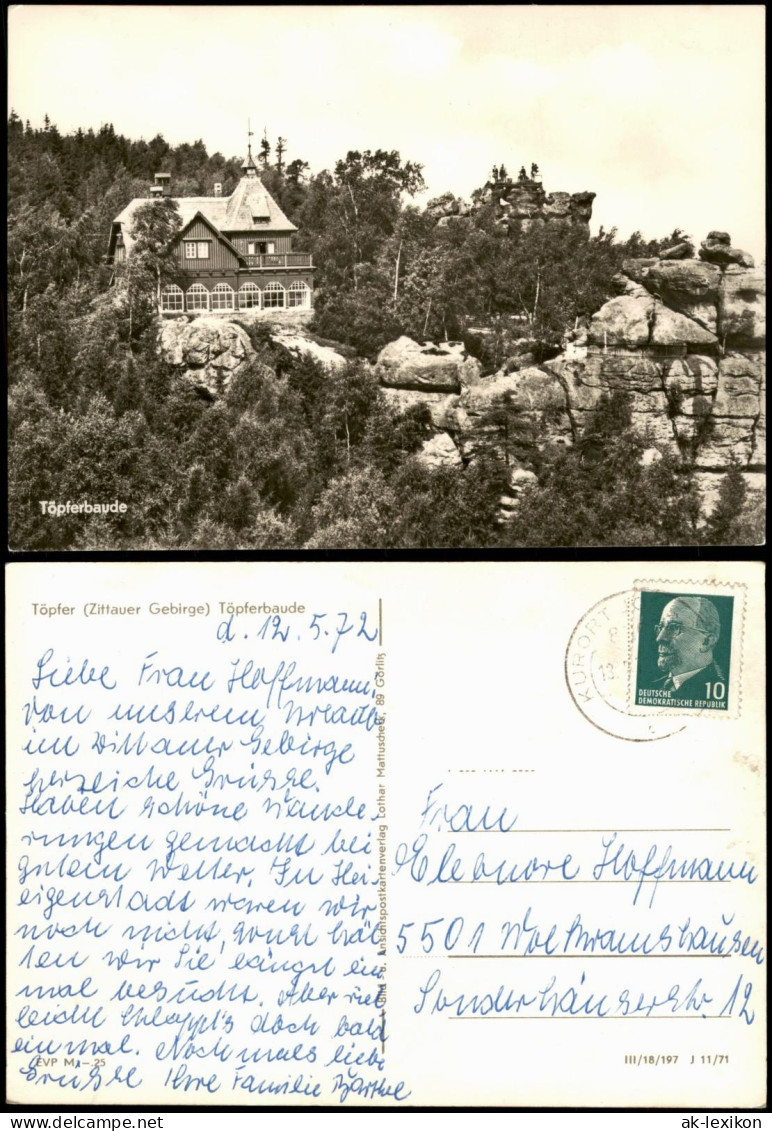 Töpferbaude
Töpfer (Zittauer Gebirge) Töpferbaude
d. 12.5.72
Liebe Frau Hoffmann,
von unserem Urlaub
im Zittauer Gebirge
herzliche Grüsse.
Haben schöne Wande-
rungen gemacht bei
gutem Wetter. In Hei-
eigenstadt waren wir
noch nicht, sonst hät
ten wir Sie längst ein
mal besucht. Aber viel
leicht klappt's doch bald
einmal. Nochmals liebe
Grüsse Ihre Familie Barthel
EVP M -.25
Bild u. Ansichtspostkartenverlag Lothar Mattuscheck, 89 Görlitz
KURORT
DEUTSCHE
DEMOKRATISCHE REPUBLIK
10
Frau
Eleonore Hoffmann
5501 Wolkramshausen
Sonderhäuserstr. 12
III/18/197 J 11/71
ak-lexikon